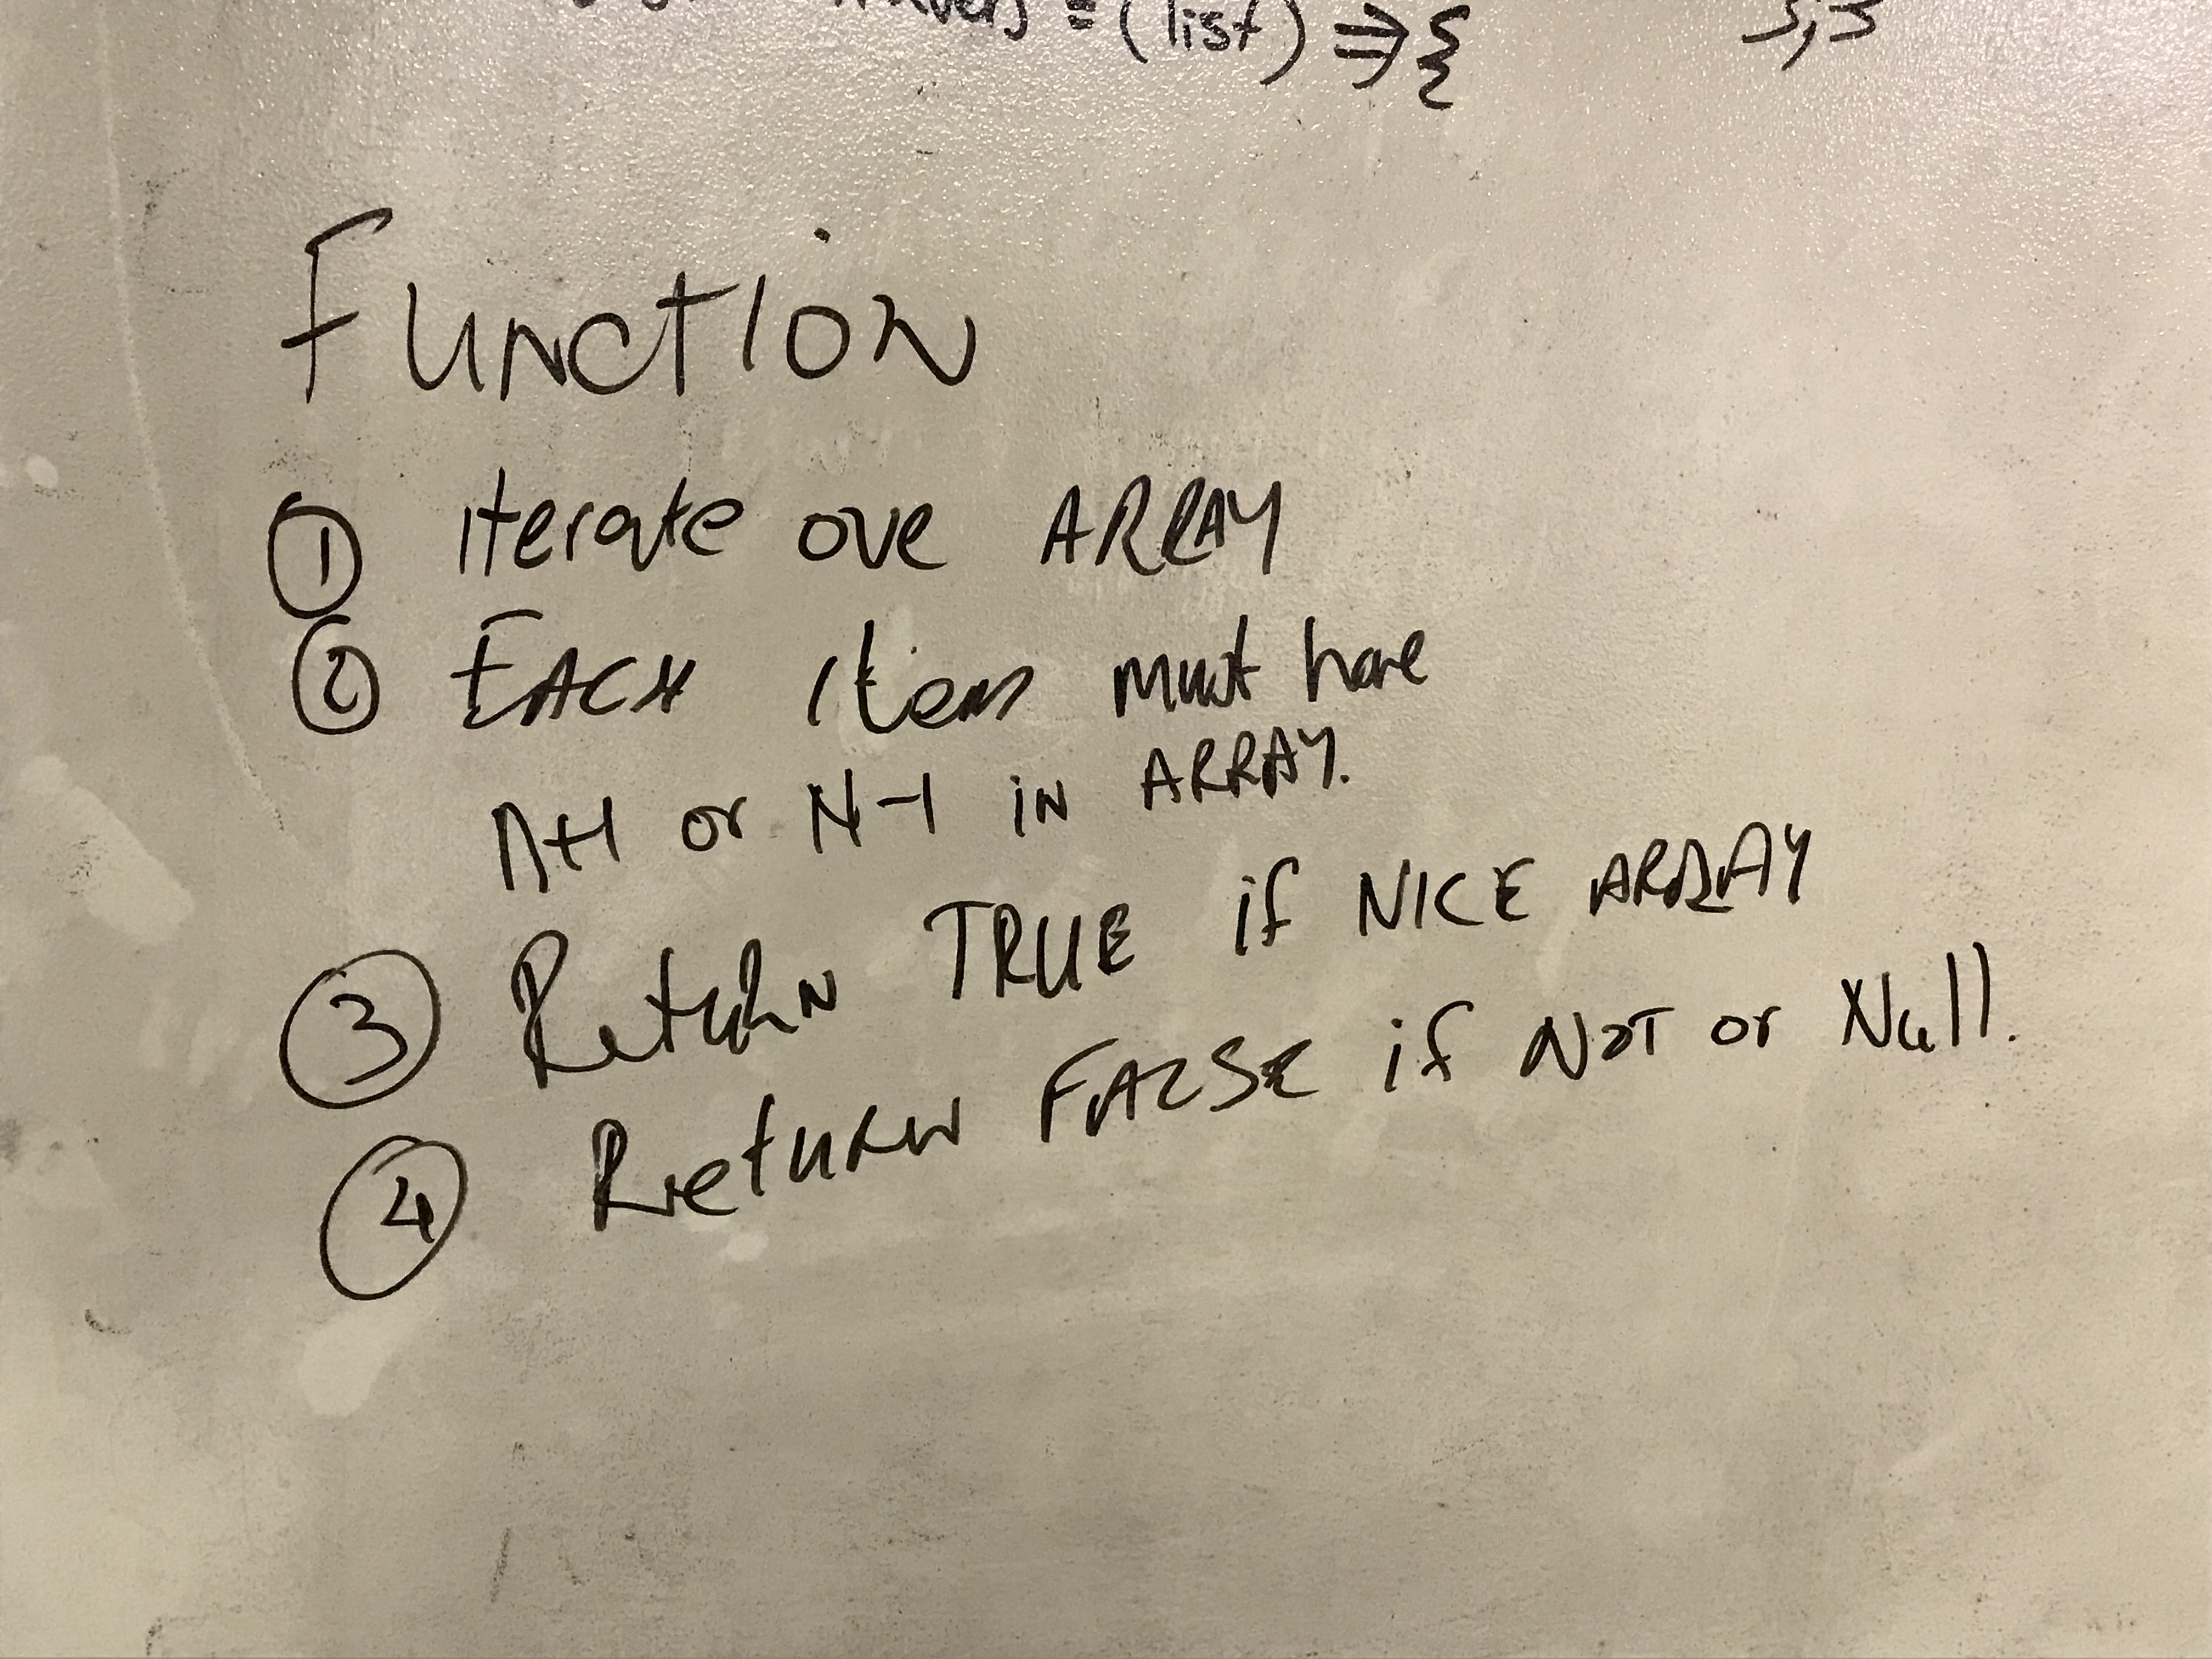 = (list) => {
Function
① iterate ove ARRAY
② EACH item must have
n+1 or N-1 in ARRAY.
③ Return TRUE if NICE ARRAY
④ Return FALSE if NOT or Null.